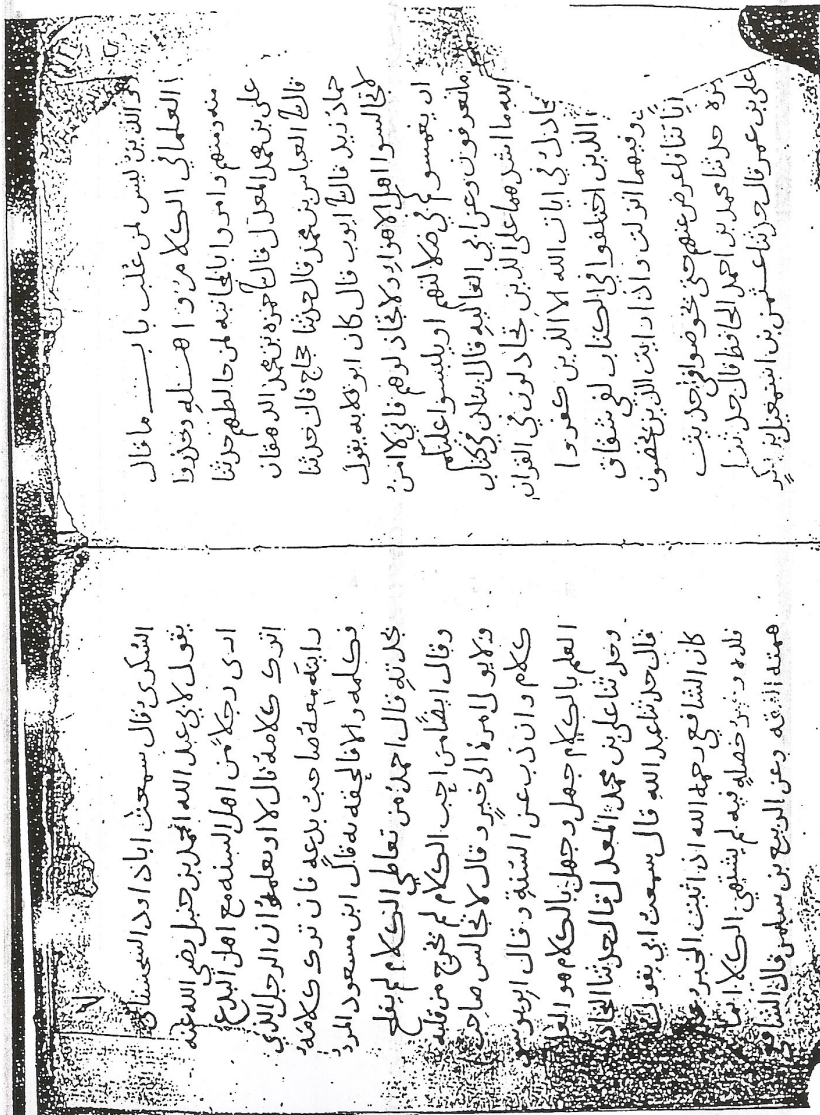 والدين ليس لمن غلب باب ما قال
العلما في الكلام واهله وحذروا
منه ومنهم وامروا بالمجانبه لمن خالطهم حدثنا
علي بن محمد المعدل قال حمزه بن محمد الدهقان
قال العباس بن محمد قال حدثنا حجاج قال حدثنا
حماد زيد قال ايوب قال كان ابو قلابه يقول
لا تجالسوا اهل الاهوا ولا تجادلوهم فاني لا امن
ان يغمسوكم في ضلالتهم او يلبسوا عليكم
ما تعرفون وعن ابي العاليه قال ايتان في كتاب
الله ما اشدهما على الذين يجادلون في القران
يجادل في ايات الله الا الذين كفروا
الذين اختلفوا في الكتاب لفي شقاق
وفيهما انزلت واذا رايت الذين يخوضون
اياتنا فاعرض عنهم حتى يخوضوا في حديث
حدثنا محمد بن احمد الحافظ قال حدثنا
علي بن عمر قال حدثنا عثمن بن اسمعيل بن بكر
السكري قال سمعت ابا داود السجستاني
يقول لابي عبد الله احمد بن حنبل رضي الله عنه
ارى رجلا من اهل السنه مع اهل البدع
اترك كلامه قال لا او تعلمه ان الرجل الذي
رايته معه صاحب بدعه فان ترك كلامه
فكلمه والا فالحقه به قال ابن مسعود المرء
بخدنه قال احمد من تعاطى الكلام لم يفلح
وقال ايضا من احب الكلام لم يخرج من قلبه
ولا يول امره الى خير وقال لا تجالس صاحب
كلام وان ذب عن السنه وقال ابو يوسف
العلم بالكلام جهل وجهل بالكلام هو العلم
وحدثنا علي بن محمد المعدل قال حدثنا النجاد
قال حدثنا عبد الله قال سمعت ابي يقول
كان الشافعي رحمه الله اذا ثبت الخبر
قلده وخير خصله فيه لم يشتهي الكلام انما
همته الفقه وعن الربيع بن سليمن قال الشافعي